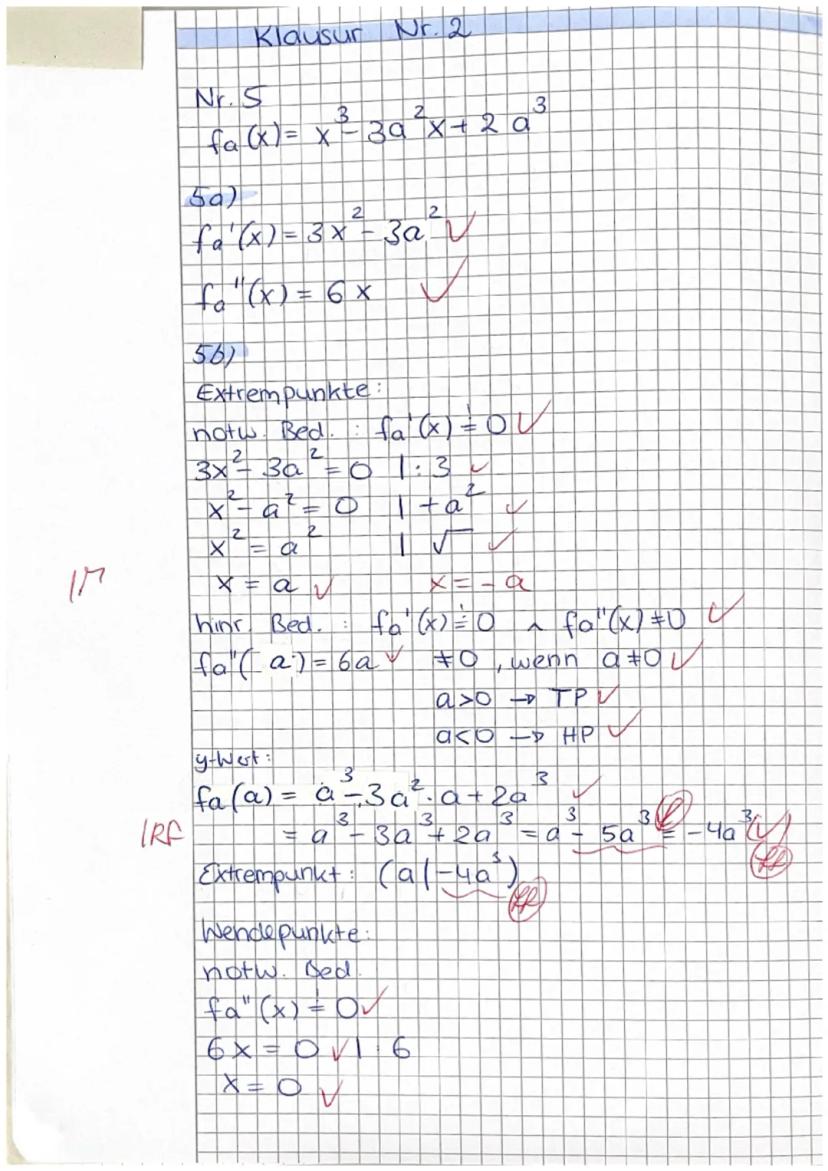 Klausur Nr. 2
Nr. 5
fa(x) = x³ - 3a²x + 2a³
5a)
fa'(x) = 3x² - 3a² ✓
fa"(x) = 6x ✓
5b)
Extrempunkte:
notw. Bed. : fa'(x) != 0 ✓
3x² - 3a² = 0 | : 3 ✓
x² - a² = 0 | + a² ✓
x² = a² | √ ✓
x = a ✓ x = -a
hinr. Bed. : fa'(x) != 0 ∧ fa"(x) ≠ 0 ✓
fa"(a) = 6a ✓ ≠ 0, wenn a ≠ 0 ✓
a > 0 → TP ✓
a < 0 → HP ✓
y-Wert:
fa(a) = a³ - 3a² · a + 2a³ ✓
1RF = a³ - 3a³ + 2a³ = a³ - 5a³ = -4a³ (✓)
Extrempunkt: (a|-4a³)
Wendepunkte:
notw. Bed.
fa"(x) != 0 ✓
6x = 0 ✓ | : 6
x = 0 ✓